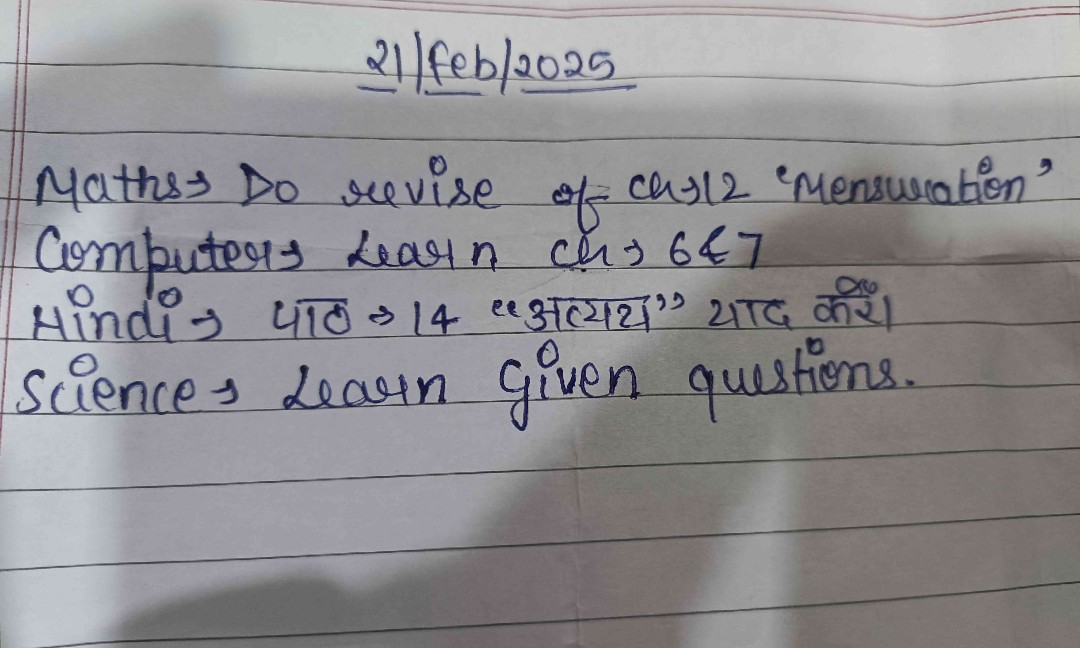 21/feb/2025
Maths→ Do revise of ch→12 ‘Mensuration’
Computer→ Learn ch→ 6&7
Hindi→ पाठ→14 “अव्यय” याद करो।
Science→ Learn Given questions.